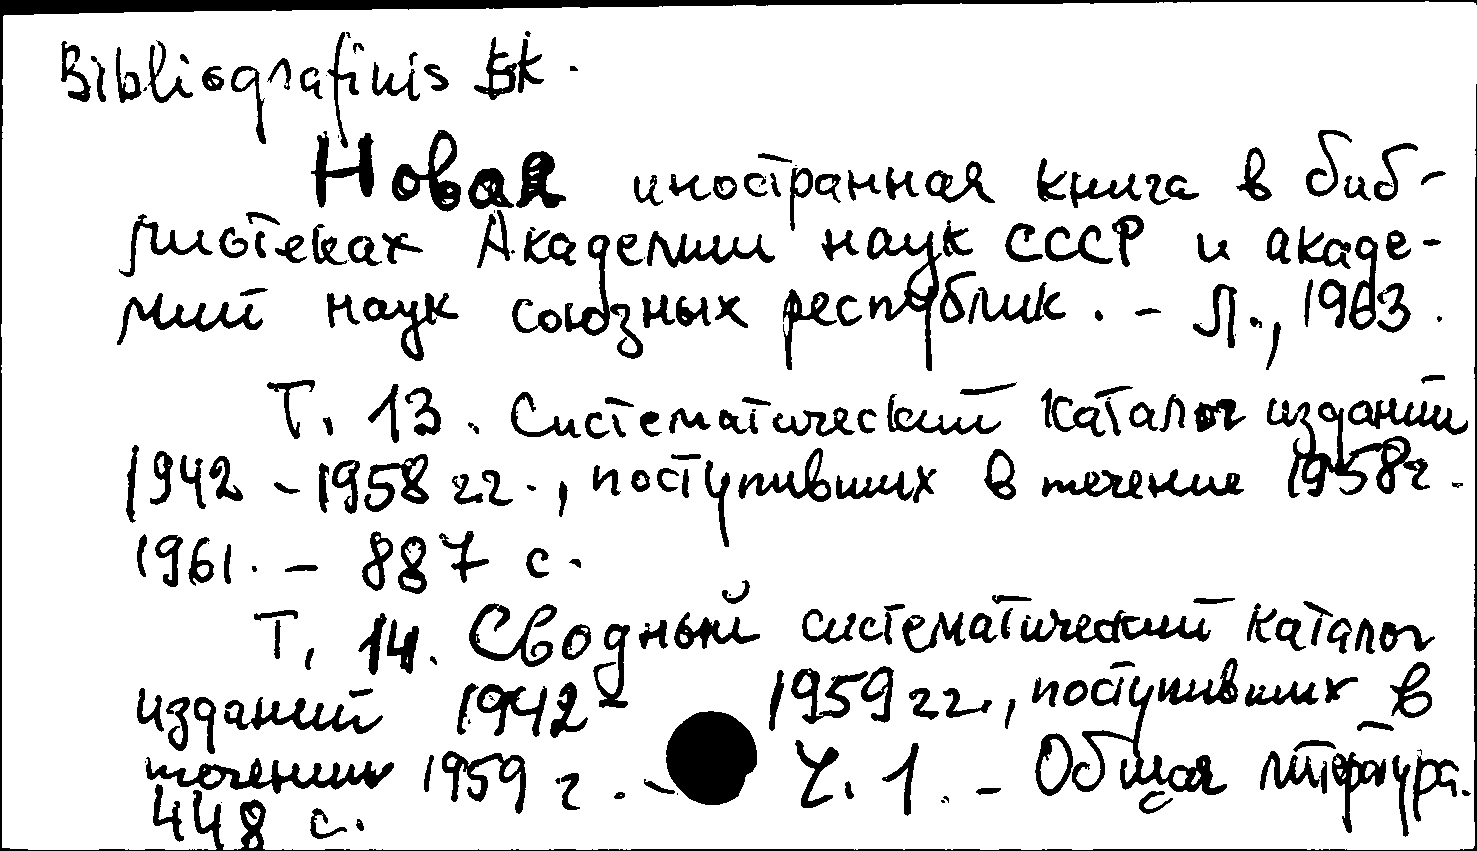 Bibliografinis sk.
Новая иностранная книга в биб-
лиотеках Академии наук СССР и акаде-
мий наук союзных республик. - Л., 1963.
Т. 13. Систематический каталог изданий
1942 - 1958 гг., поступивших в течение 1958 г.
1961. - 887 с.
Т. 14. Сводный систематический каталог
изданий 1942 - 1959 гг., поступивших в
течении 1959 г. - Ч. 1. - Общая литература.
448 с.